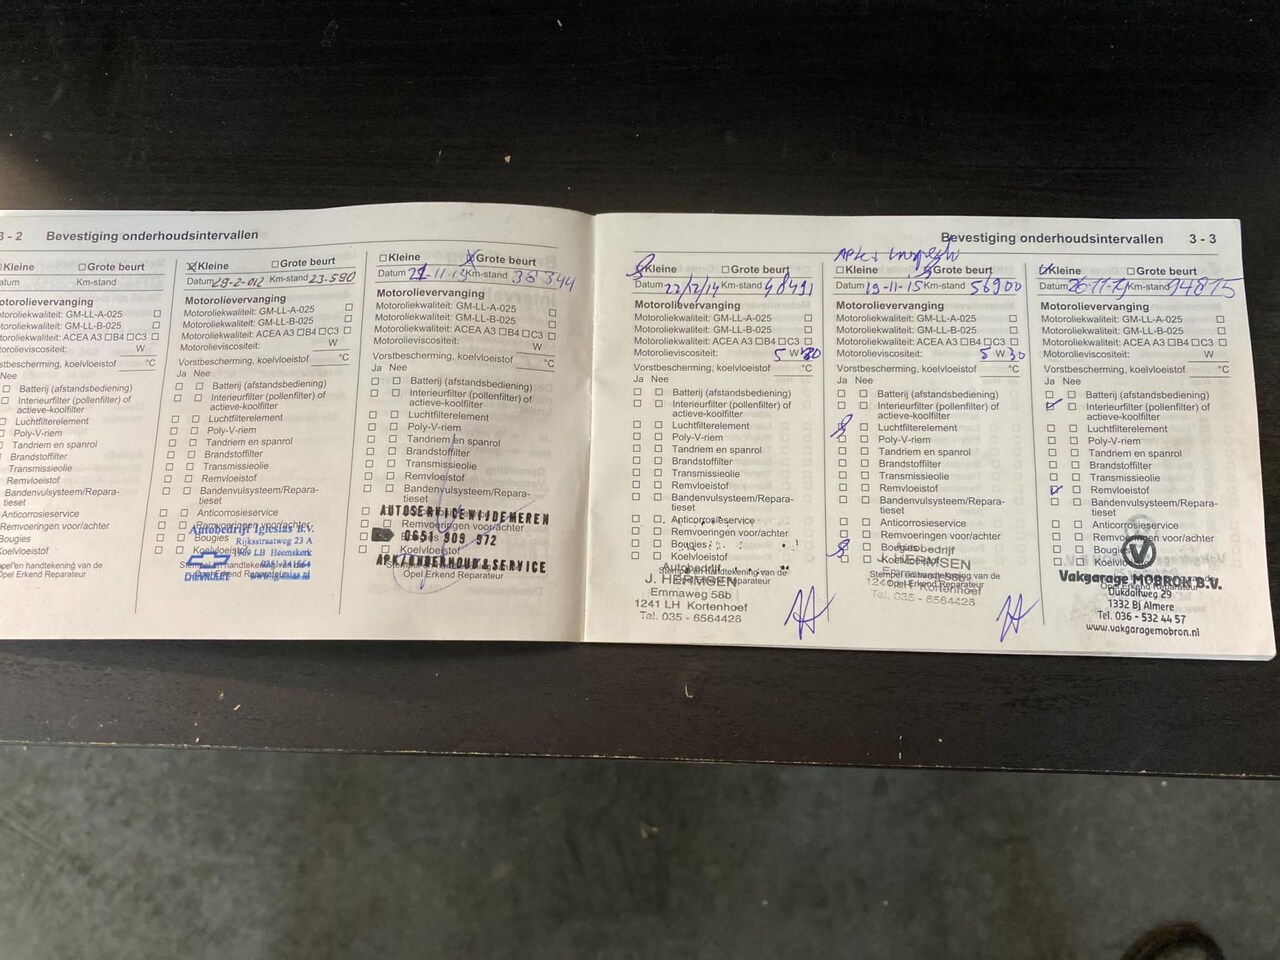 3 - 2 Bevestiging onderhoudsintervallen
Kleine ☐ Grote beurt
Datum Km-stand
Motorolievervanging
Motoroliekwaliteit: GM-LL-A-025 ☐
Motoroliekwaliteit: GM-LL-B-025 ☐
Motoroliekwaliteit: ACEA A3 ☐B4 ☐C3 ☐
Motorolieviscositeit: W
Vorstbescherming, koelvloeistof °C
Nee
☐ Batterij (afstandsbediening)
☐ Interieurfilter (pollenfilter) of
actieve-koolfilter
☐ Luchtfilterelement
☐ Poly-V-riem
☐ Tandriem en spanrol
Brandstoffilter
Transmissieolie
Remvloeistof
Bandenvulsysteem/Repara-
tieset
Anticorrosieservice
Remvoeringen voor/achter
Bougies
Koelvloeistof
Stempel en handtekening van de
Opel Erkend Reparateur
☒ Kleine ☐ Grote beurt
Datum 29-2-012 Km-stand 23-590
Motorolievervanging
Motoroliekwaliteit: GM-LL-A-025 ☐
Motoroliekwaliteit: GM-LL-B-025 ☐
Motoroliekwaliteit: ACEA A3 ☐B4 ☐C3 ☐
Motorolieviscositeit: W
Vorstbescherming, koelvloeistof °C
Ja Nee
☐ ☐ Batterij (afstandsbediening)
☐ ☐ Interieurfilter (pollenfilter) of
actieve-koolfilter
☐ ☐ Luchtfilterelement
☐ ☐ Poly-V-riem
☐ ☐ Tandriem en spanrol
☐ ☐ Brandstoffilter
☐ ☐ Transmissieolie
☐ ☐ Remvloeistof
☐ ☐ Bandenvulsysteem/Repara-
tieset
☐ ☐ Anticorrosieservice
☐ ☐ Remvoeringen voor/achter
☐ ☐ Bougies
☐ ☐ Koelvloeistof
Stempel en handtekening van de
Opel Erkend Reparateur
Autobedrijf Iglesias B.V.
Rijksstraatweg 23 A
1969 LB Heemskerk
CHEVROLET
☐ Kleine ☒ Grote beurt
Datum 21-11-13 Km-stand 38344
Motorolievervanging
Motoroliekwaliteit: GM-LL-A-025 ☐
Motoroliekwaliteit: GM-LL-B-025 ☐
Motoroliekwaliteit: ACEA A3 ☐B4 ☐C3 ☐
Motorolieviscositeit: W
Vorstbescherming, koelvloeistof °C
Ja Nee
☐ ☐ Batterij (afstandsbediening)
☐ ☐ Interieurfilter (pollenfilter) of
actieve-koolfilter
☐ ☐ Luchtfilterelement
☐ ☐ Poly-V-riem
☐ ☐ Tandriem en spanrol
☐ ☐ Brandstoffilter
☐ ☐ Transmissieolie
☐ ☐ Remvloeistof
☐ ☐ Bandenvulsysteem/Repara-
tieset
☐ ☐ Remvoeringen voor/achter
☐ ☐ Koelvloeistof
Opel Erkend Reparateur
AUTOSERVICE WIJDEMEREN
0651 909 972
APK / ONDERHOUD & SERVICE
Bevestiging onderhoudsintervallen 3 - 3
Kleine ☐ Grote beurt
Datum 22/12/14 Km-stand 48491
Motorolievervanging
Motoroliekwaliteit: GM-LL-A-025 ☐
Motoroliekwaliteit: GM-LL-B-025 ☐
Motoroliekwaliteit: ACEA A3 ☐B4 ☐C3 ☐
Motorolieviscositeit: 5 W 30
Vorstbescherming, koelvloeistof °C
Ja Nee
☐ ☐ Batterij (afstandsbediening)
☐ ☐ Interieurfilter (pollenfilter) of
actieve-koolfilter
☐ ☐ Luchtfilterelement
☐ ☐ Poly-V-riem
☐ ☐ Tandriem en spanrol
☐ ☐ Brandstoffilter
☐ ☐ Transmissieolie
☐ ☐ Remvloeistof
☐ ☐ Bandenvulsysteem/Repara-
tieset
☐ ☐ Anticorrosieservice
☐ ☐ Remvoeringen voor/achter
☐ ☐ Bougies
☐ ☐ Koelvloeistof
Stempel en handtekening van de
Opel Erkend Reparateur
Autobedrijf
J. HERMSEN
Emmaweg 58b
1241 LH Kortenhoef
Tel. 035 - 6564426
APK +
☐ Kleine Grote beurt
Datum 19-11-15 Km-stand 56900
Motorolievervanging
Motoroliekwaliteit: GM-LL-A-025 ☐
Motoroliekwaliteit: GM-LL-B-025 ☐
Motoroliekwaliteit: ACEA A3 ☐B4 ☐C3 ☐
Motorolieviscositeit: 5 W 30
Vorstbescherming, koelvloeistof °C
Ja Nee
☐ ☐ Batterij (afstandsbediening)
☐ ☐ Interieurfilter (pollenfilter) of
actieve-koolfilter
☐ Luchtfilterelement
☐ ☐ Poly-V-riem
☐ ☐ Tandriem en spanrol
☐ ☐ Brandstoffilter
☐ ☐ Transmissieolie
☐ ☐ Remvloeistof
☐ ☐ Bandenvulsysteem/Repara-
tieset
☐ ☐ Anticorrosieservice
☐ ☐ Remvoeringen voor/achter
☐ Bougies
☐ ☐ Koelvloeistof
Stempel en handtekening van de
Opel Erkend Reparateur
Autobedrijf
J. HERMSEN
Emmaweg 58b
1241 LH Kortenhoef
Tel. 035 - 6564426
Kleine ☐ Grote beurt
Datum 26-11-19 Km-stand 94815
Motorolievervanging
Motoroliekwaliteit: GM-LL-A-025 ☐
Motoroliekwaliteit: GM-LL-B-025 ☐
Motoroliekwaliteit: ACEA A3 ☐B4 ☐C3 ☐
Motorolieviscositeit: W
Vorstbescherming, koelvloeistof °C
Ja Nee
☐ ☐ Batterij (afstandsbediening)
☑ ☐ Interieurfilter (pollenfilter) of
actieve-koolfilter
☐ ☐ Luchtfilterelement
☐ ☐ Poly-V-riem
☐ ☐ Tandriem en spanrol
☐ ☐ Brandstoffilter
☐ ☐ Transmissieolie
☑ ☐ Remvloeistof
☐ ☐ Bandenvulsysteem/Repara-
tieset
☐ ☐ Anticorrosieservice
☐ ☐ Remvoeringen voor/achter
☐ ☐ Bougies
☐ ☐ Koelvloeistof
Opel Erkend Reparateur
Vakgarage MOBRON B.V.
Dukdolfweg 29
1332 Bj Almere
Tel. 036 - 532 44 57
www.vakgaragemobron.nl